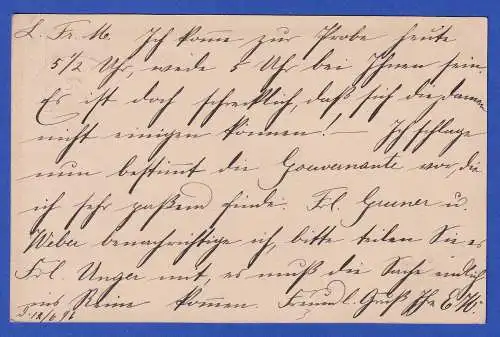 L. Fr. M. Ich komme zur Probe heute
5 1/2 Uhr, werde 5 Uhr bei Ihnen sein.
Es ist doch schrecklich, daß sich die Damen
nicht einigen können! – Ich schlage
nun bestimmt die Gouvernante vor, die
ich sehr paßend finde. Frl. Gruner u.
Weber benachrichtige ich, bitte teilen Sie es
Frl. Unger mit, es muß die Sache endlich
ins Reine kommen. Freundl. Gruß Ihr E.K.
D. 12/6 91